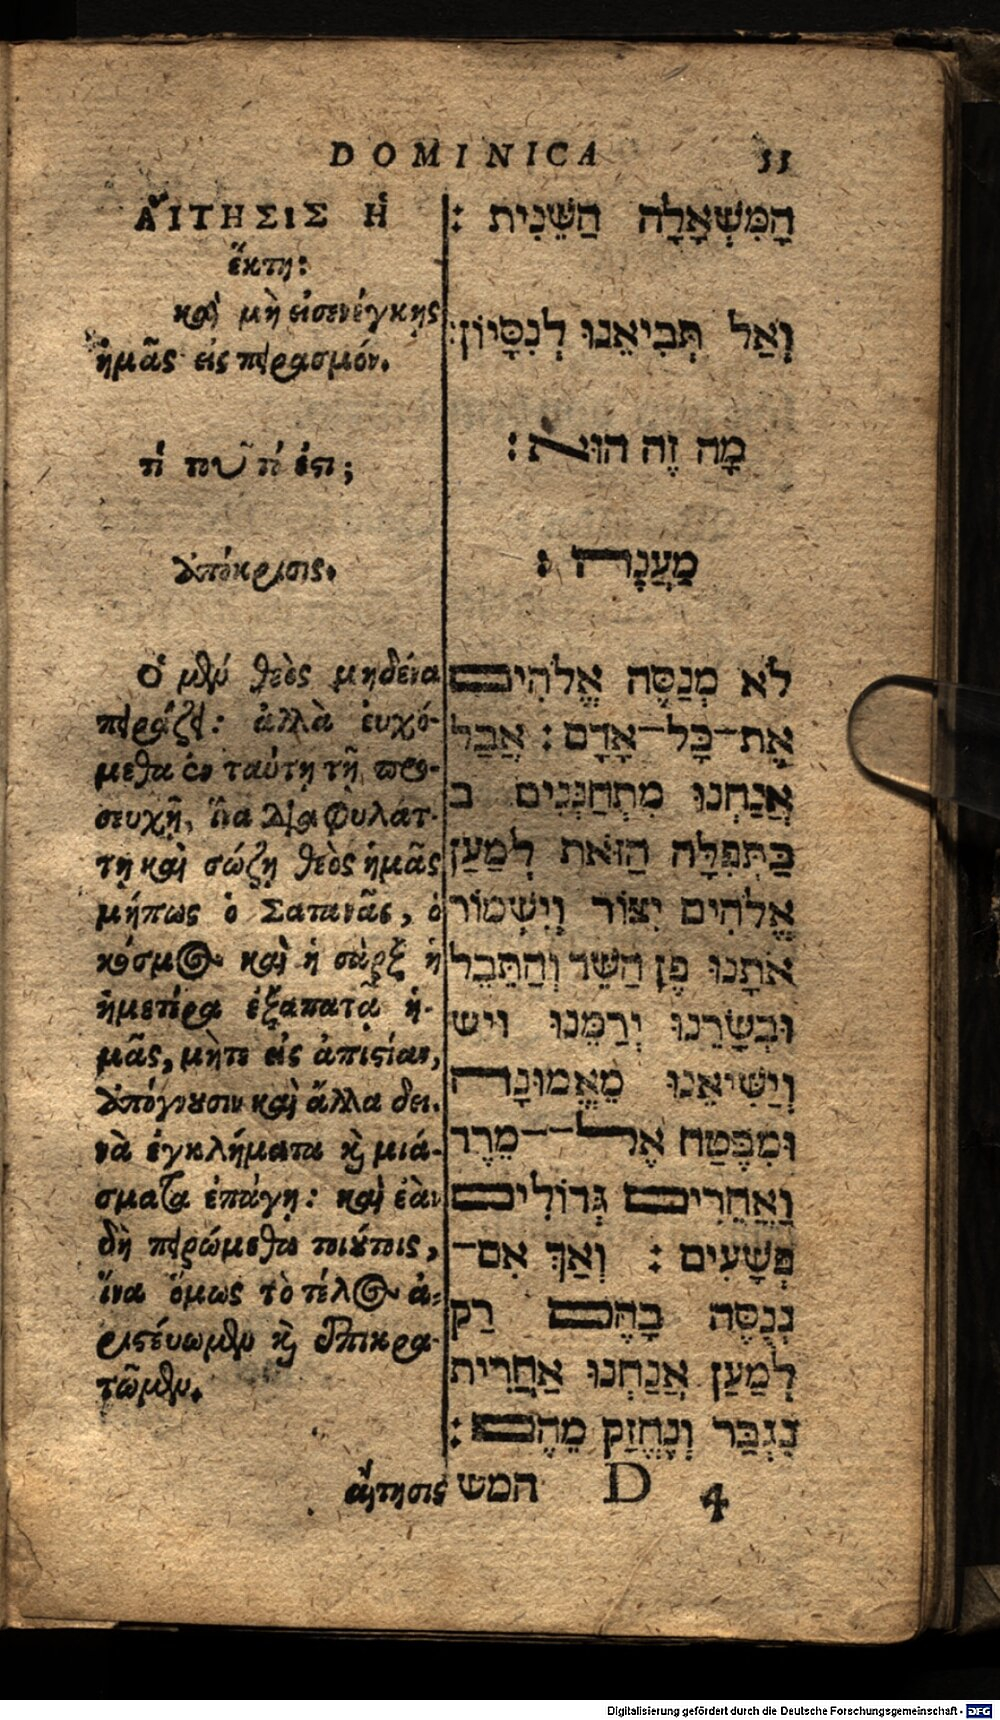 DOMINICA 55
ἌΙΤΗΣΙΣ Ἡ
ἕκτη:
καὶ μὴ εἰσενέγκῃς
ἡμᾶς εἰς πειρασμόν.
τί ποῦ τί ἐστι;
ἀπόκρισις.
Ὁ μὲν θεὸς μηδένα
πειράζει: ἀλλὰ ἐυχό-
μεθα ἐν ταύτῃ τῇ προ-
σευχῇ, ἵνα διαφυλάτ-
τῃ καὶ σώζῃ θεὸς ἡμᾶς
μήπως ὁ Σατανᾶς, ὁ
κόσμος καὶ ἡ σὰρξ ἡ
ἡμετέρα ἐξαπατᾷ ἡ-
μᾶς, μήτε εἰς ἀπιστίαν,
ἀπόγνωσιν καὶ ἄλλα δει-
νὰ ἐγκλήματα καὶ μιά-
σματα ἐπάγῃ: καὶ ἐὰν
δὴ πειρώμεθα τοιούτοις,
ἵνα ὅμως τὸ τέλος ἀ-
ριστέυωμεν καὶ ἐπικρα-
τῶμεν.
ἄιτησις
הָמִּשְׁאָלָה הַשֵּׁנִית :
וְאַל תְּבִיאֵנוּ לְנִסָּיוֹן:
מָה זֶה הוּא :
מַעֲנָה :
לֹא מְנַסֶּה אֱלֹהִים
אֶת־כָּל־אָדָם : אֲבַל
אֲנַחְנוּ מִתְחַנְּנִים ב
בַּתְּפִלָּה הַזֹּאת לְמַעַן
אֱלֹהִים יִצּוֹר וְיִשְׁמוֹר
אֹתָנוּ פֶּן הַשֵּׁד וְהַתֵּבֵל
וּבְשָׂרֵנוּ יְרַמֵּנוּ ויש
וְיַשִּׁיאֵנוּ מֵאֱמוּנָה
וּמִבֶּטַח אֶל־־מֶרֶד
וַאֲחֵרִים גְּדוֹלִים
פְּשָׁעִים : וְאַךְ אִם־
נְנֻסֶּה בָּהֶם רַק
לְמַעַן אֲנַחְנוּ אַחֲרִית
נִגְבַּר וְנֶחֱזַק מֵהֶם :
המש D 4
Digitalisierung gefördert durch die Deutsche Forschungsgemeinschaft - DFG